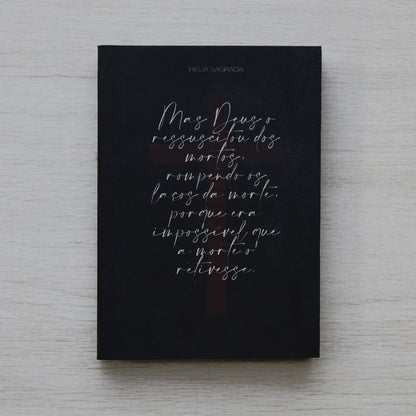 BÍBLIA SAGRADA
Mas Deus o
ressuscitou dos
mortos,
rompendo os
laços da morte,
porque era
impossível que
a morte o
retivesse.